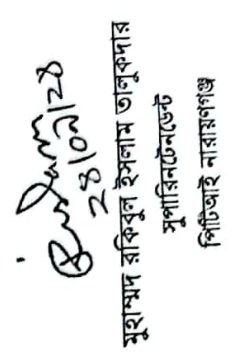 ২৪|০৯|২৪
মুহাম্মদ রকিবুল ইসলাম তালুকদার
সুপারিনটেনডেন্ট
পিটিআই নারায়ণগঞ্জ